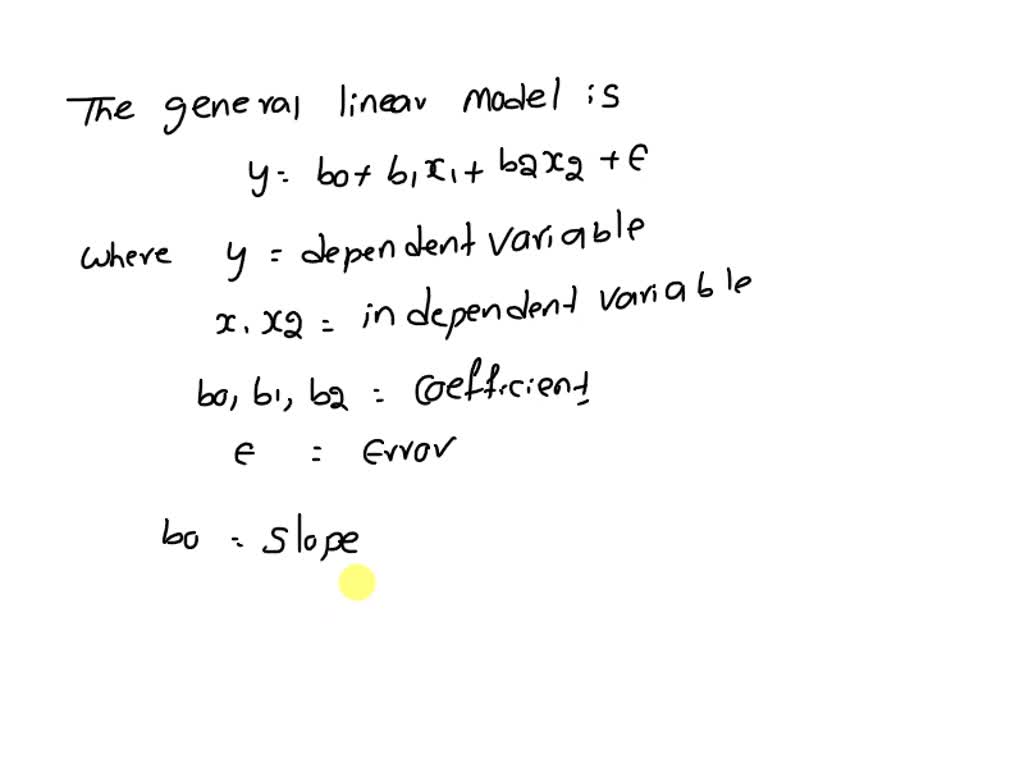 The general linear model is
y = b0 + b1x1 + b2x2 + ϵ
where y = dependent variable
x1 x2 = independent variable
b0, b1, b2 = coefficient
ϵ = Error
b0 = slope